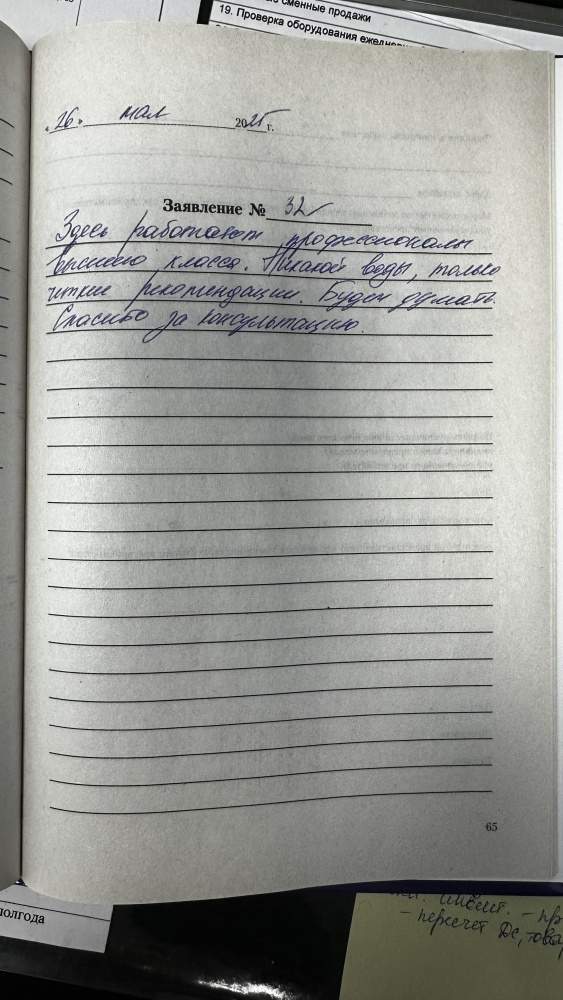 сменные продажи
19. Проверка оборудования ежедневн
«26» мая 2025 г.
Заявление № 32
Здесь работают профессионалы
высшего класса. Никакой воды, только
четкие рекомендации. Будем думать.
Спасибо за консультацию.
65
полгода
- пр
- пересчет ДС, това